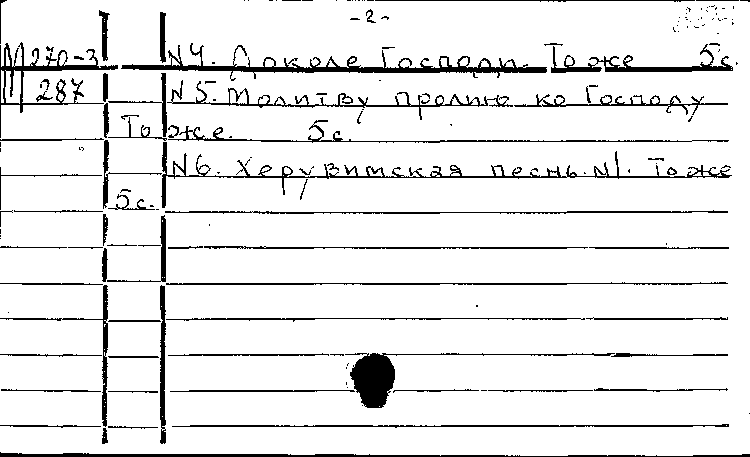 -2-
М 270-3 N4. Доколе Господи. То же 5с.
287 N5. Молитву пролию ко Господу
То же. 5с.
N6. Херувимская песнь. N1. То же
5с.